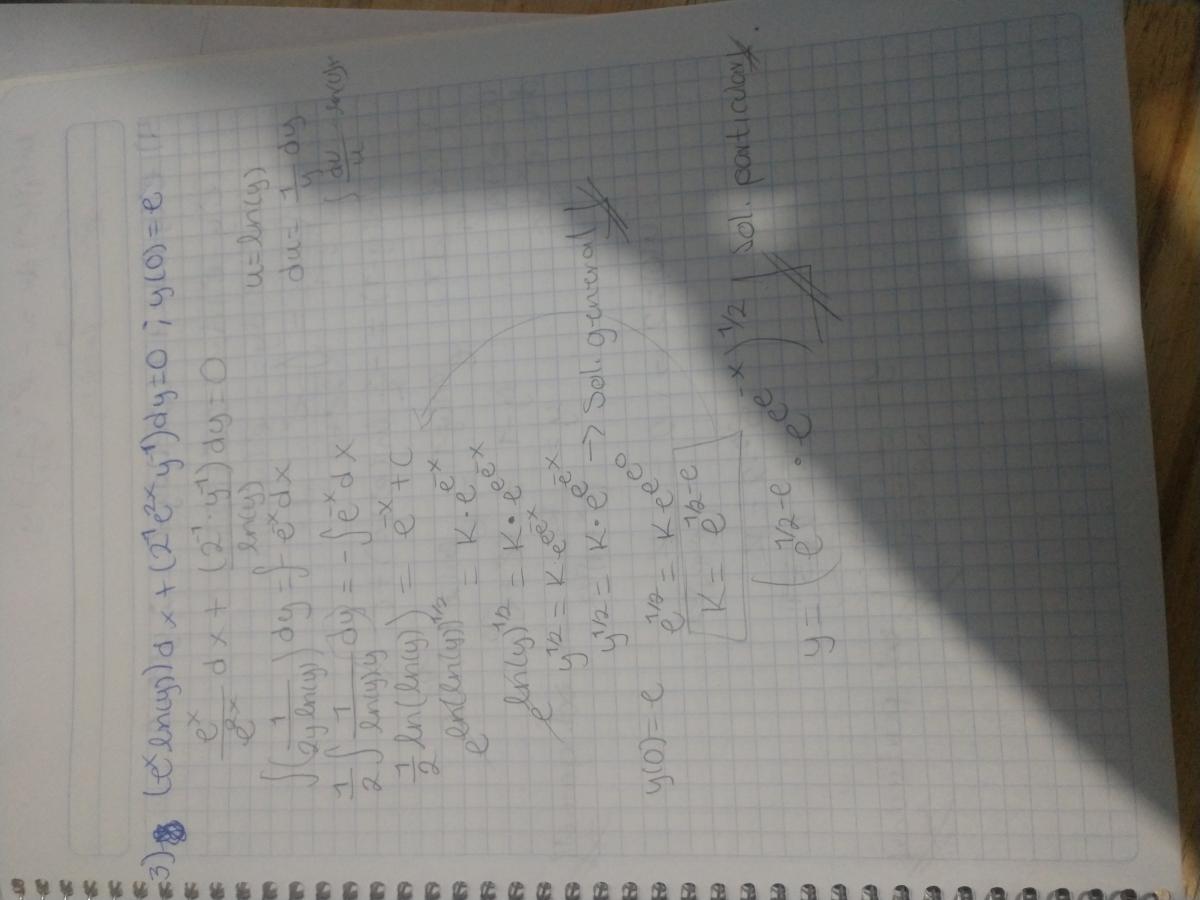 3) (eˣ ln(y))dx + (2⁻¹e²ˣy⁻¹)dy=0 ; y(0)=e
eˣ/e²ˣ dx + (2⁻¹·y⁻¹)/ln(y) dy=0
u=ln(y)
∫(1/(2yln(y)))dy=∫-e⁻ˣdx
du= 1/y dy
1/2 ∫ 1/(ln(y)y) dy = -∫e⁻ˣdx
∫ du/u
1/2 ln(ln(y)) = e⁻ˣ+C
e^(ln(ln(y))^(1/2)) = K·e^(e^(-x))
e^(ln(y)^(1/2)) = K·e^(e^(e^(-x)))
y^(1/2) = K·e^(e^(e^(-x)))
y^(1/2) = K·e^(e^(e^(-x))) → Sol. general
y(0)=e e^(1/2) = K e^(e^(e^0))
K= e^(1/2-e)
y= (e^(1/2-e) · e^(e^(e^(-x))))^(1/2) | Sol. particular.